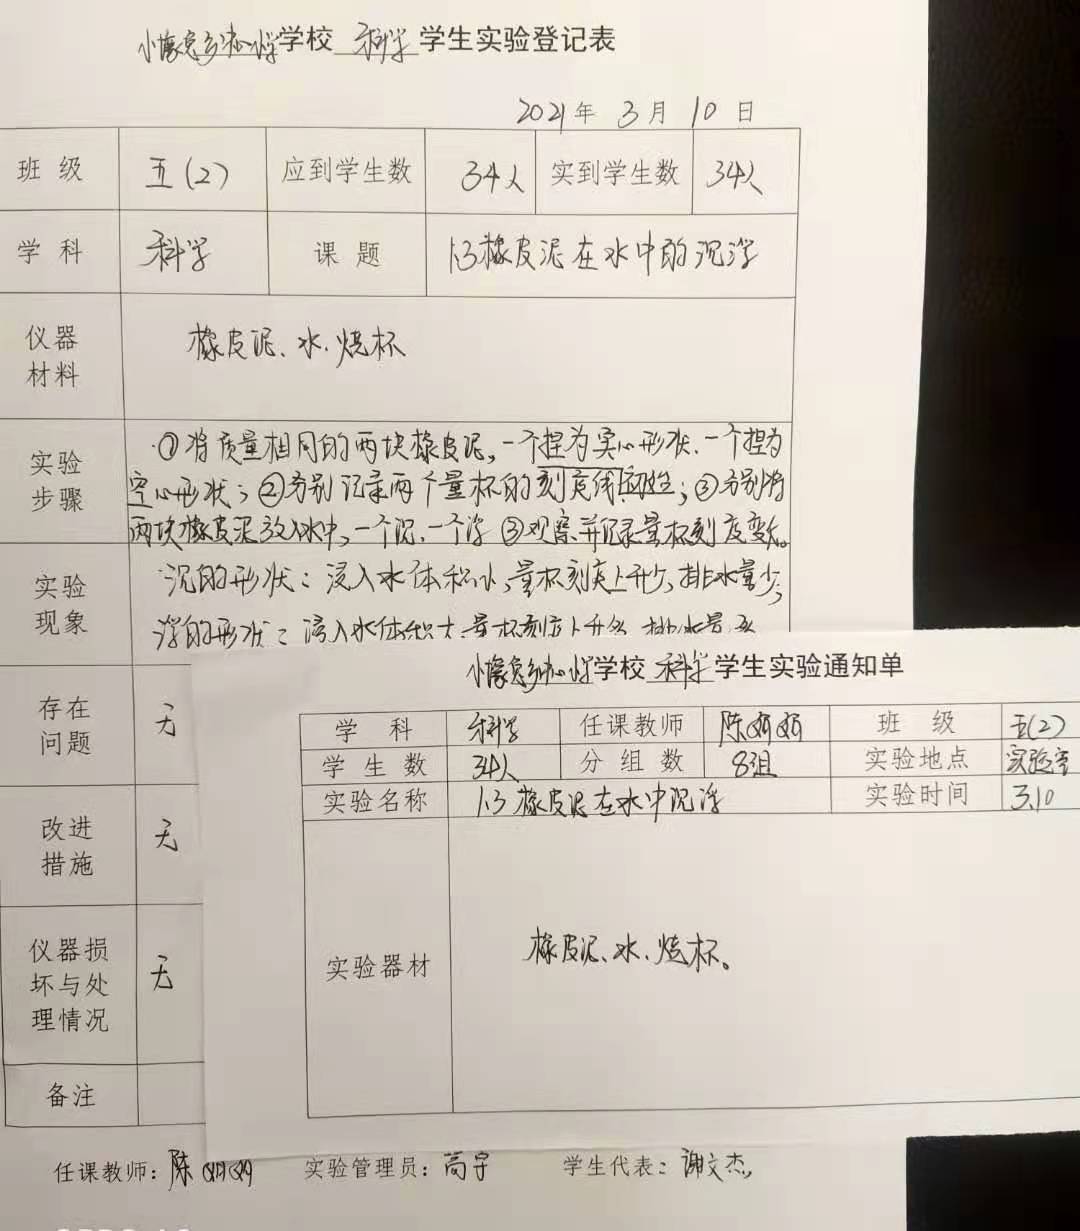 学校 科学 学生实验登记表
2021年 3月 10日
班级 五(2) 应到学生数 34人 实到学生数 34人
学科 科学 课题 1.3橡皮泥在水中的沉浮
仪器材料 橡皮泥、水、烧杯
实验步骤
①将质量相同的两块橡皮泥，一个捏为实心形状.一个捏为
空心形状；②分别记录两个量杯的刻度线；③分别将
两块橡皮泥放入水中，一个沉.一个浮 ③观察并记录量杯刻度变化。
实验现象
沉的形状：浸入水体积小，量杯刻度上升少，排水量少；
浮的形状：浸入水体积大 量杯刻度上升多 排水量多
存在问题 无
改进措施 无
仪器损坏与处理情况 无
备注
任课教师：陈 实验管理员：高宇 学生代表：谢文杰
学校 科学 学生实验通知单
学科 科学 任课教师 陈 班级 五(2)
学生数 34人 分组数 8组 实验地点 实验室
实验名称 1.3橡皮泥在水中沉浮 实验时间 3.10
实验器材 橡皮泥、水、烧杯。